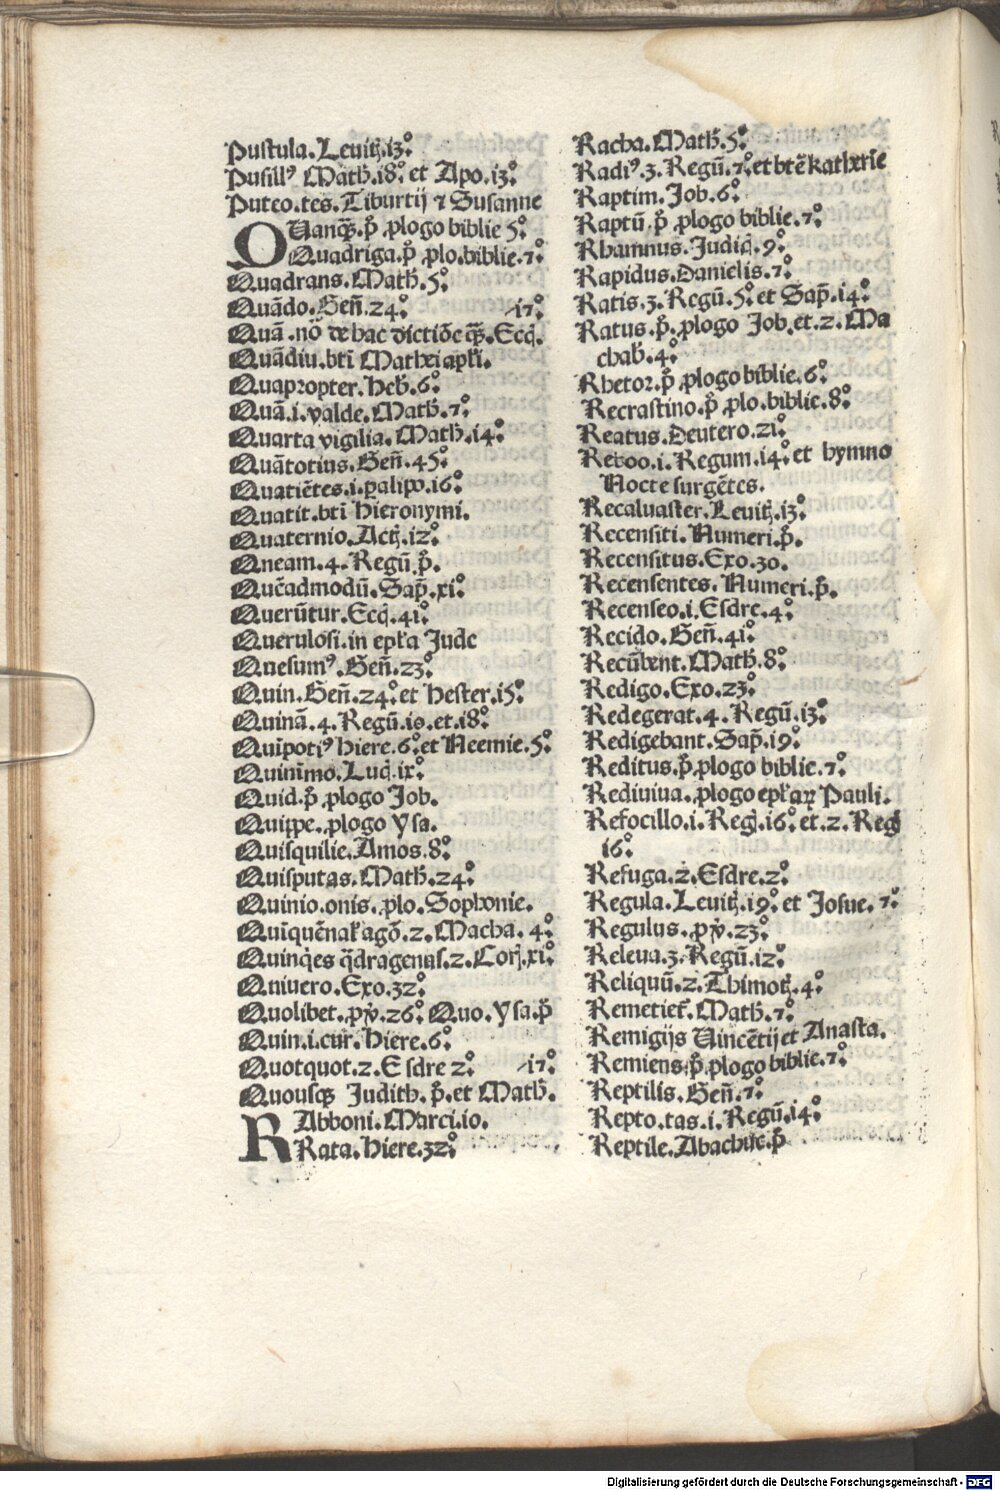 Pustula. Leuitꝭ. 13°.
Pusillꝰ Math̄. 18°. et Apo. 13°.
Puteo. tes̄. Tiburtij ⁊ Susanne
QUanqꝫ. p̄. ꝓlogo biblie 5°.
Quadriga. p̄ ꝓlo. biblie. 7°.
Quadrans. Math̄. 5°.
Quādo. Gen̄. 24°. 17°.
Quā. nō de hac dictiōe qꝫ. Ecq̄.
Quādiu. bt̄i Mathei apłi.
Quapropter. Heb̄. 6°.
Quā. i. valde. Math̄. 7°.
Quarta vigilia. Math̄. 14°.
Quātotius. Gen̄. 45°.
Quatiētes. i. ꝑalipo. 16°.
Quatit. bt̄i Hieronymi.
Quaternio. Actꝭ. 12°.
Qneam. 4. Regū. p̄.
Quēadmodū. Sap̄. xi°.
Querūtur. Ecq̄. 41°.
Querulosi. in epła Jude
Quesumꝰ. Gen̄. 23°.
Quin. Gen̄. 24°. et Hester. 15°.
Quinā. 4. Regū. 10. et. 18°.
Quipotiꝰ Hiere. 6°. et Neemie. 5°.
Quinīmo. Luc̄. ix°.
Quid. p̄. ꝓlogo Job.
Quippe. ꝓlogo Ysa.
Quisquilie. Amos. 8°.
Quisputas. Math̄. 24°.
Quinio. onis. ꝓlo. Sophonie.
Quīquēnał agō. 2. Macha. 4°.
Quinqͥes q̄dragenas. 2. Corꝭ. xi°.
Qniuero. Exo. 32°.
Quolibet. pv̄. 26°. Quo. Ysa. p̄
Quin. i. cur. Hiere. 6°.
Quotquot. 2. Esdre 2°. 17°.
Quousqꝫ Judith. p̄. et Math̄.
RAbboni. Marci. 10.
Rata. Hiere. 32°.
Racha. Math̄. 5°.
Radiꝰ. 3. Regū. 7°. et bt̄e katherīe
Raptim. Job. 6°.
Raptū. p̄. ꝓlogo biblie. 7°.
Rhamnus. Judic̄. 9°.
Rapidus. Danielis. 7°.
Ratis. 3. Regū. 5°. et Sap̄. 14°.
Ratus. p̄. ꝓlogo Job. et. 2. Ma
chab̄. 4°.
Rhetor. p̄. ꝓlogo biblie. 6°.
Recrastino. p̄ ꝓlo. biblie. 8°.
Reatus. Deutero. 21°.
Reboo. i. Regum. 14°. et hymno
Nocte surgētes.
Recaluaster. Leuitꝭ. 13°.
Recensiti. Numeri. p̄.
Recensitus. Exo. 30.
Recensentes. Numeri. p̄.
Recenseo. i. Esdre. 4°.
Recido. Gen̄. 41°.
Recūbent. Math̄. 8°.
Redigo. Exo. 23°.
Redegerat. 4. Regū. 13°.
Redigebant. Sap̄. 19°.
Reditus. p̄. ꝓlogo biblie. 7°.
Rediuiua. ꝓlogo epłaꝝ Pauli.
Refocillo. i. Regꝭ. 16°. et. 2. Regꝭ
16°.
Refuga. 2. Esdre. 2°.
Regula. Leuitꝭ. 19°. et Josue. 7°.
Regulus. pv̄. 23°.
Releua. 3. Regū. 12°.
Reliquū. 2. Thimotꝭ. 4°.
Remetiet̄. Math̄. 7°.
Remigijs Vincētij et Anasta.
Remiens. p̄. ꝓlogo biblie. 7°.
Reptilis. Gen̄. 7°.
Repto. tas. i. Regū. 14°.
Reptile. Abachuc. p̄
Digitalisierung gefördert durch die Deutsche Forschungsgemeinschaft - DFG